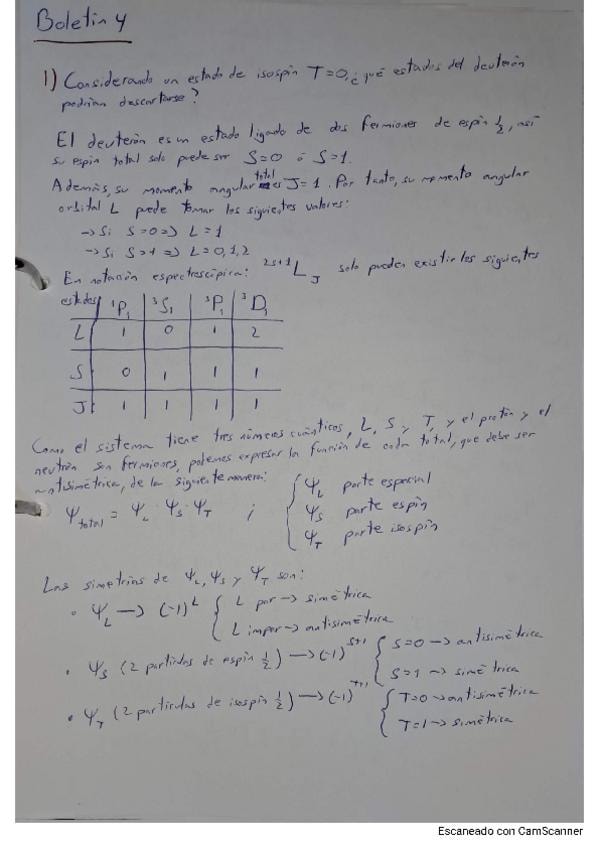 Boletín 4
1) Considerando un estado de isospín T=0, ¿qué estados del deuterón
podrían descartarse?
El deuterón es un estado ligado de dos fermiones de espín 1/2, así
su espín total solo puede ser S=0 ó S=1.
Además, su momento angular total es J=1. Por tanto, su momento angular
orbital L puede tomar los siguientes valores:
→ Si S=0 => L=1
→ Si S=1 => L=0,1,2
En notación espectroscópica: ²ˢ⁺¹L_J solo pueden existir los siguientes
estados | ¹P₁ | ³S₁ | ³P₁ | ³D₁
L | 1 | 0 | 1 | 2
S | 0 | 1 | 1 | 1
J | 1 | 1 | 1 | 1
Como el sistema tiene tres números cuánticos, L, S y T, y el protón y el
neutrón son fermiones, podemos expresar la función de onda total, que debe ser
antisimétrica, de la siguiente manera:
Ψ_total = Ψ_L · Ψ_S · Ψ_T ; { Ψ_L parte espacial
Ψ_S parte espín
Ψ_T parte isospín
Las simetrías de Ψ_L, Ψ_S y Ψ_T son:
• Ψ_L → (-1)^L { L par → simétrica
L impar → antisimétrica
• Ψ_S (2 partículas de espín 1/2) → (-1)^(S+1) { S=0 → antisimétrica
S=1 → simétrica
• Ψ_T (2 partículas de isospín 1/2) → (-1)^(T+1) { T=0 → antisimétrica
T=1 → simétrica
Escaneado con CamScanner